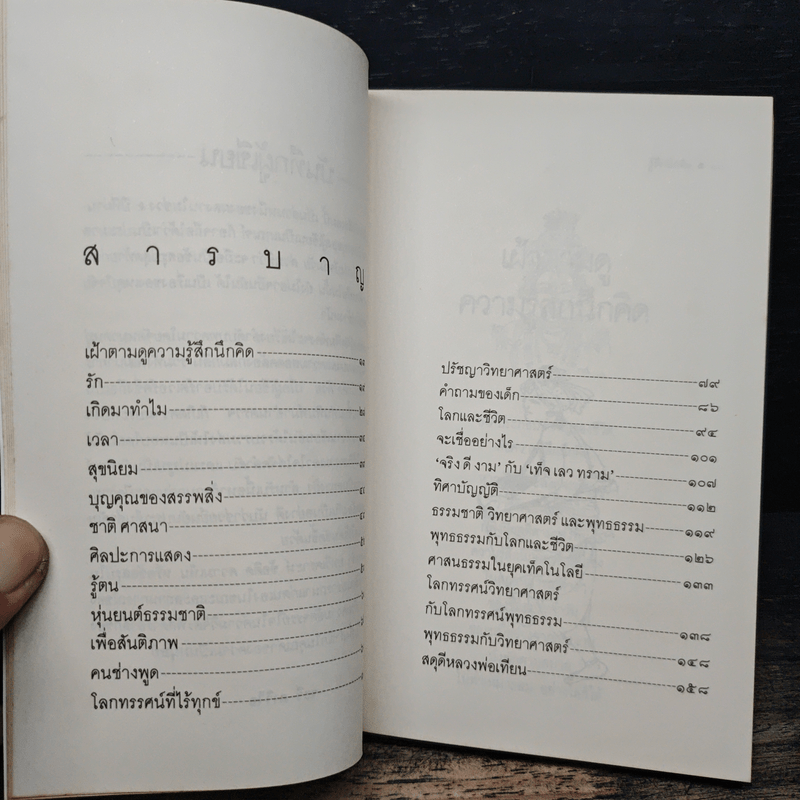 สารบาญ
เฝ้าตามดูความรู้สึกนึกคิด
รัก
เกิดมาทำไม
เวลา
สุขนิยม
บุญคุณของสรรพสิ่ง
ชาติ ศาสนา
ศิลปะการแสดง
รู้ตน
หุ่นยนต์ธรรมชาติ
เพื่อสันติภาพ
คนช่างพูด
โลกทรรศน์ที่ไร้ทุกข์
ปรัชญาวิทยาศาสตร์ ๗๙
คำถามของเด็ก ๘๖
โลกและชีวิต ๙๔
จะเชื่ออย่างไร ๑๐๑
‘จริง ดี งาม’ กับ ‘เท็จ เลว ทราม’ ๑๐๗
ทิศาบัญญัติ ๑๑๒
ธรรมชาติ วิทยาศาสตร์ และพุทธธรรม ๑๑๙
พุทธธรรมกับโลกและชีวิต ๑๒๖
ศาสนธรรมในยุคเท็คโนโลยี ๑๓๓
โลกทรรศน์วิทยาศาสตร์
กับโลกทรรศน์พุทธธรรม ๑๓๘
พุทธธรรมกับวิทยาศาสตร์ ๑๔๘
สดุดีหลวงพ่อเทียน ๑๕๘